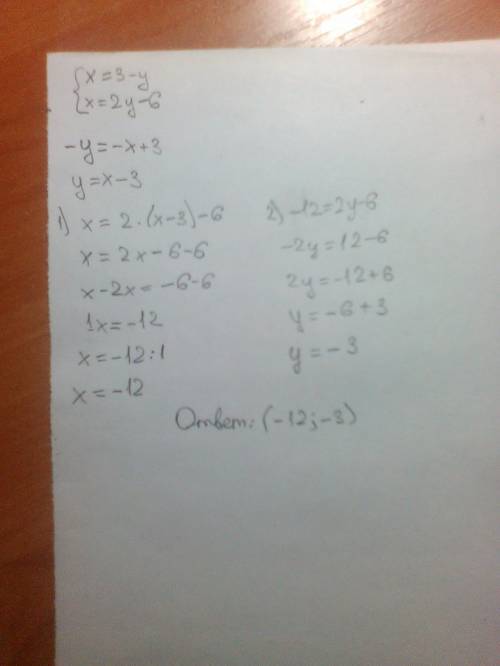 {x=3-y
{x=2y-6
-y=-x+3
y=x-3
1) x=2·(x-3)-6
x=2x-6-6
x-2x=-6-6
1x=-12
x=-12:1
x=-12
2) -12=2y-6
-2y=12-6
2y=-12+6
y=-6+3
y=-3
Ответ: (-12;-3)